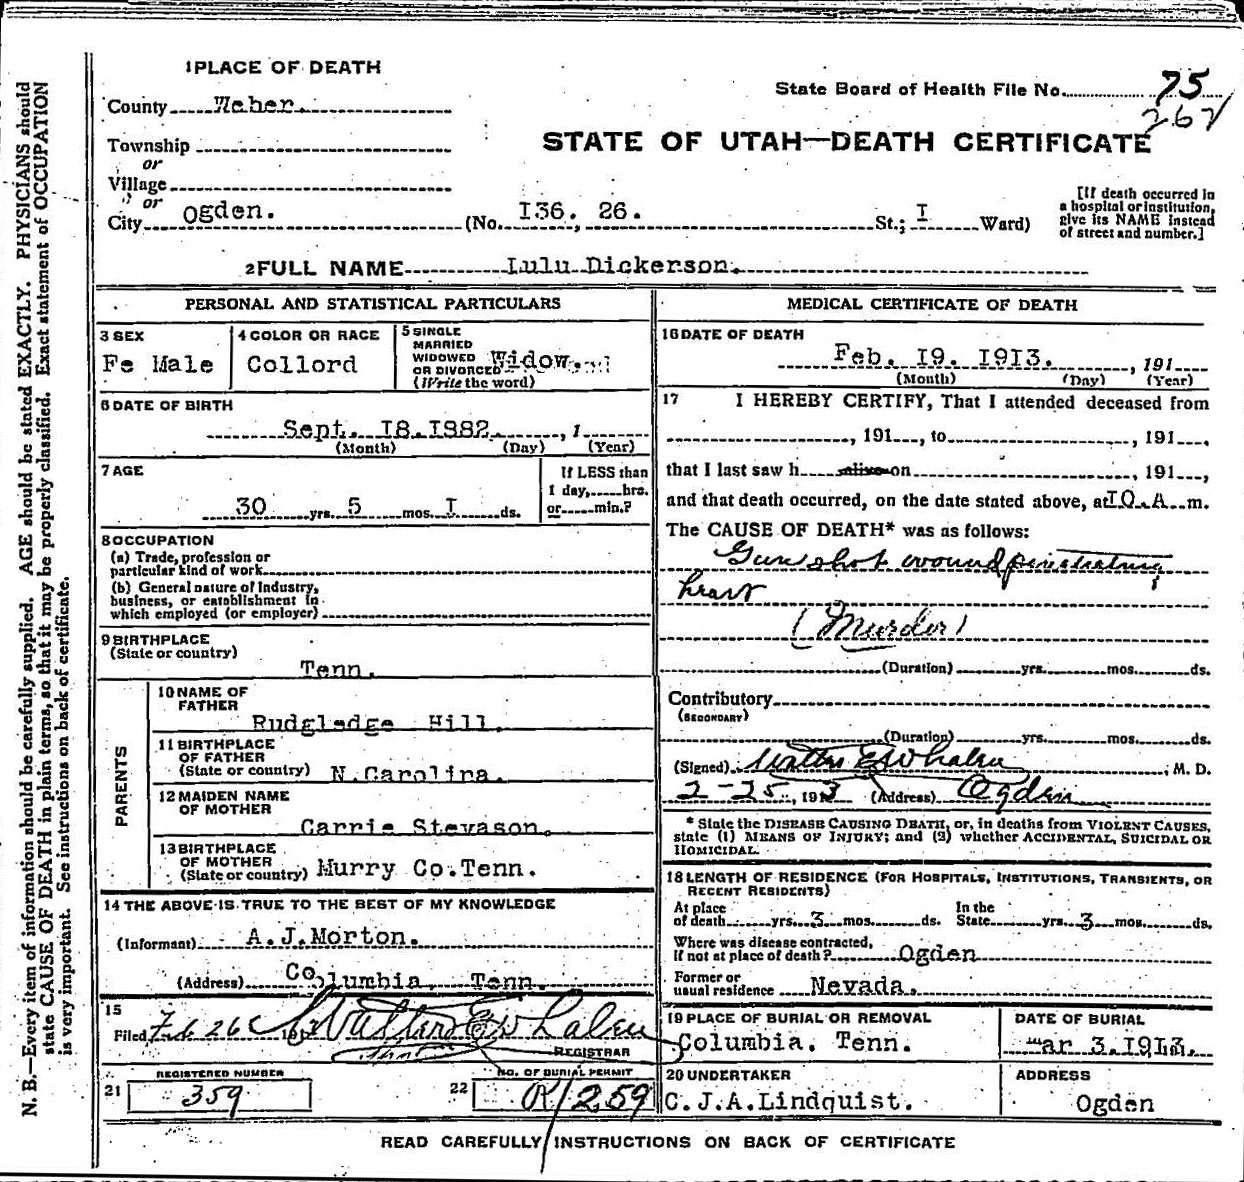 1 PLACE OF DEATH
County Weber.
Township
or
Village
or
City Ogden. (No. I36. 26. St.; I Ward)
State Board of Health File No. 75
262
STATE OF UTAH—DEATH CERTIFICATE
[If death occurred in
a hospital or institution,
give its NAME instead
of street and number.]
2 FULL NAME Lulu Dickerson.
PERSONAL AND STATISTICAL PARTICULARS
3 SEX
Fe Male
4 COLOR OR RACE
Collord
5 SINGLE
MARRIED
WIDOWED
OR DIVORCED
(Write the word)
Widow.
6 DATE OF BIRTH
Sept. I8.I982. , 1
(Month) (Day) (Year)
7 AGE
30 yrs. 5 mos. I ds.
If LESS than
1 day, hrs.
or min.?
8 OCCUPATION
(a) Trade, profession or
particular kind of work
(b) General nature of Industry,
business, or establishment in
which employed (or employer)
9 BIRTHPLACE
(State or country)
Tenn.
PARENTS
10 NAME OF
FATHER
Rudgledge Hill.
11 BIRTHPLACE
OF FATHER
(State or country) N.Carolina.
12 MAIDEN NAME
OF MOTHER
Carrie Stevason.
13 BIRTHPLACE
OF MOTHER
(State or country) Murry Co.Tenn.
14 THE ABOVE IS TRUE TO THE BEST OF MY KNOWLEDGE
(Informant) A.J.Morton.
(Address) Columbia. Tenn.
15
Filed Feb 26 191 Walter E Whalen
REGISTRAR
REGISTERED NUMBER
21 359
NO. OF BURIAL PERMIT
22 R/259
MEDICAL CERTIFICATE OF DEATH
16 DATE OF DEATH
Feb. I9. I9I3. , 191
(Month) (Day) (Year)
17 I HEREBY CERTIFY, That I attended deceased from
, 191 , to , 191 ,
that I last saw h alive on , 191 ,
and that death occurred, on the date stated above, at IO.A m.
The CAUSE OF DEATH* was as follows:
Gun shot wound penetrating
heart
(Murder)
(Duration) yrs. mos. ds.
Contributory
(SECONDARY)
(Duration) yrs. mos. ds.
(Signed) Walter E Whalen ; M. D.
2-25, 1913 (Address) Ogden
* State the DISEASE CAUSING DEATH, or, in deaths from VIOLENT CAUSES,
state (1) MEANS OF INJURY; and (2) whether ACCIDENTAL, SUICIDAL OR
HOMICIDAL.
18 LENGTH OF RESIDENCE (FOR HOSPITALS, INSTITUTIONS, TRANSIENTS, OR
RECENT RESIDENTS)
At place
of death yrs. 3 mos. ds.
In the
State yrs. 3 mos. ds.
Where was disease contracted,
If not at place of death? Ogden
Former or
usual residence Nevada.
19 PLACE OF BURIAL OR REMOVAL
Columbia. Tenn.
DATE OF BURIAL
Mar 3.I9I3.
20 UNDERTAKER
C.J.A.Lindquist.
ADDRESS
Ogden
READ CAREFULLY INSTRUCTIONS ON BACK OF CERTIFICATE
N. B.—Every item of information should be carefully supplied. AGE should be stated EXACTLY. PHYSICIANS should
state CAUSE OF DEATH in plain terms, so that it may be properly classified. Exact statement of OCCUPATION
is very important. See instructions on back of certificate.